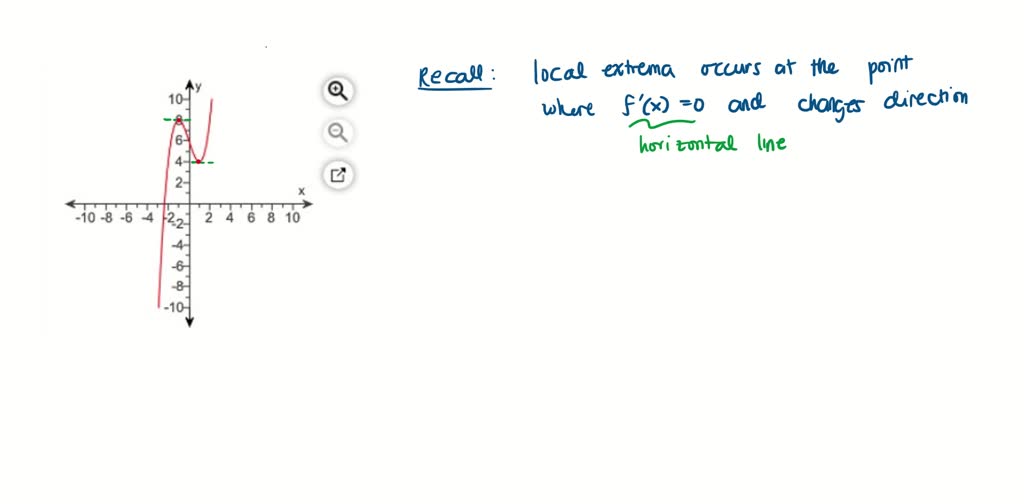 Recall: local extrema occurs at the point
where f'(x) =0 and changes direction
horizontal line
y
10
8
6
4
2
x
-10 -8 -6 -4 -2 2 4 6 8 10
-2
-4
-6
-8
-10